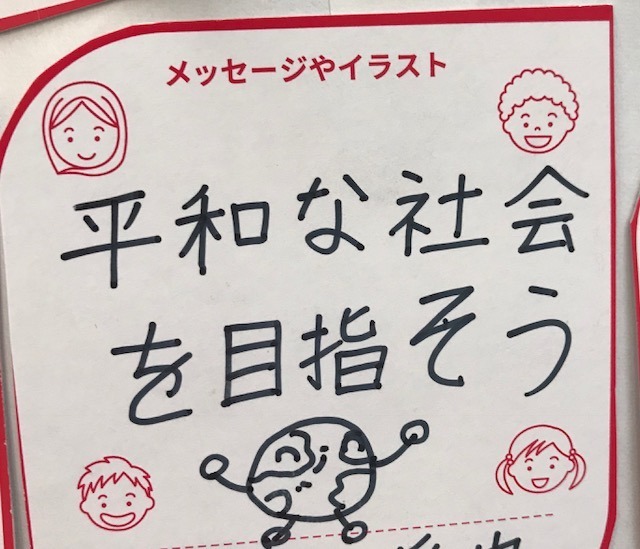 メッセージやイラスト
平和な社会
を目指そう